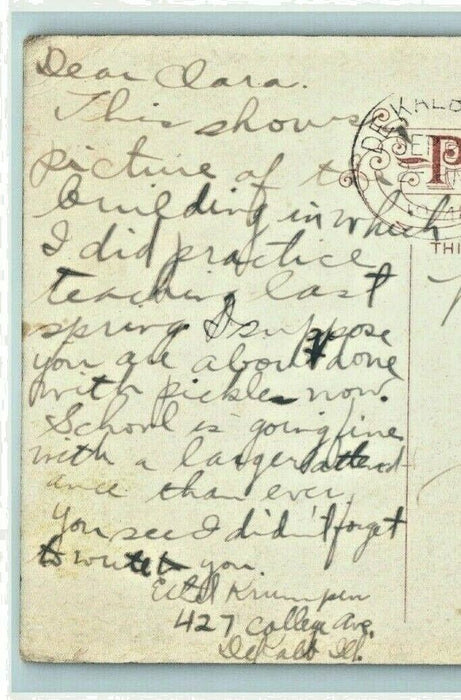 Dear Clara.
This shows
picture of
building in which
I did practice
teaching last
spring. I suppose
you are about done
with pickles now.
School is going fine
with a larger attend
ance than ever.
You see I didn't forget
to write you.
Ethel Krumpen
427 College Ave.
DeKalb Ill.
DEKALB
P
THI